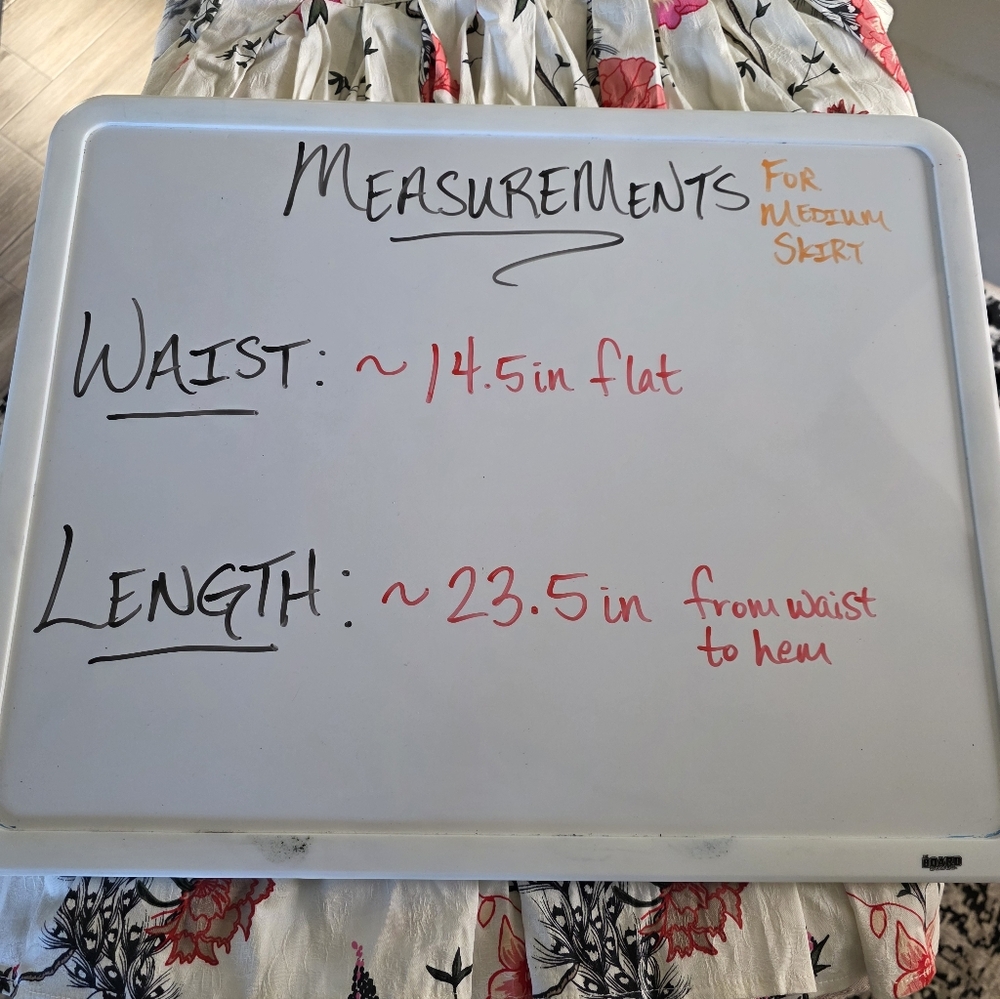 MEASUREMENTS
FOR
MEDIUM
SKIRT
WAIST: ~14.5in flat
LENGTH: ~23.5in from waist
to hem
BOARD